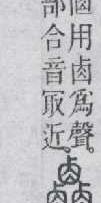 用鹵爲聲。
部合音冣近。